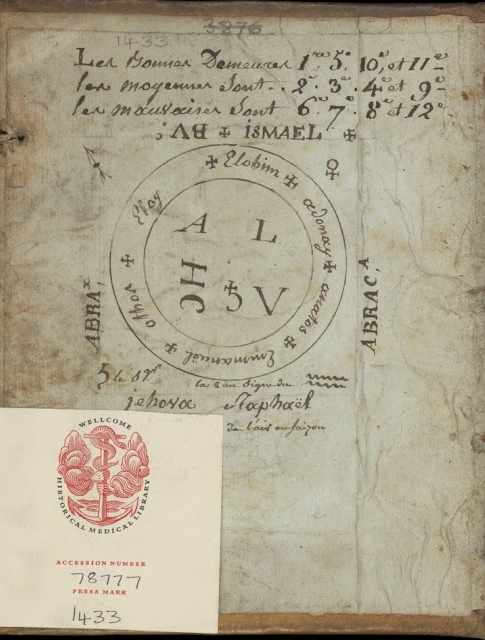 3876
1433
Les Bonnes Demeures 1re, 5e, 10e, et 11e
les moyennes Sont. . 2e. 3e. 4e et 9e
les mauvaises Sont 6e. 7e. 8e et 12e
✠ ISMAEL ✠
♀
✠ Elohim ✠ adonay ✠ anatos ✠ Emmanuel ✠ ✠ Eloy
A L
V
ABRA,
ABRACA
Jehova Raphaël
de l'air en
WELLCOME
HISTORICAL MEDICAL LIBRARY
ACCESSION NUMBER
78777
PRESS MARK
1433